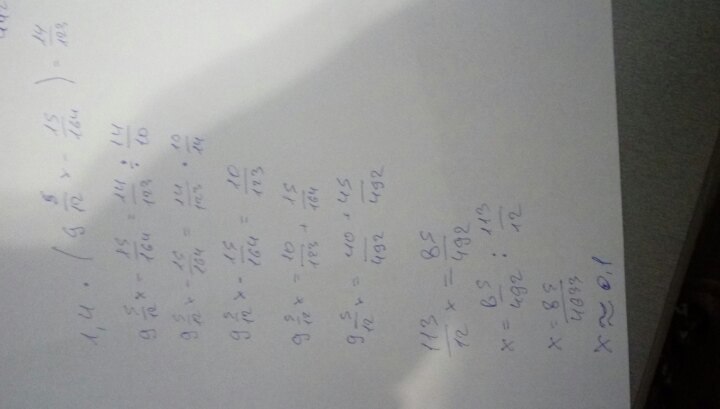 1,4 · (9 5/12 x - 15/164) = 14/123
9 5/12 x - 15/164 = 14/123 : 14/10
9 5/12 x - 15/164 = 14/123 · 10/14
9 5/12 x - 15/164 = 10/123
9 5/12 x = 10/123 + 15/164
9 5/12 x = 40 + 45/492
113/12 x = 85/492
x = 85/492 : 113/12
x = 85/4633
x ≈ 0,1